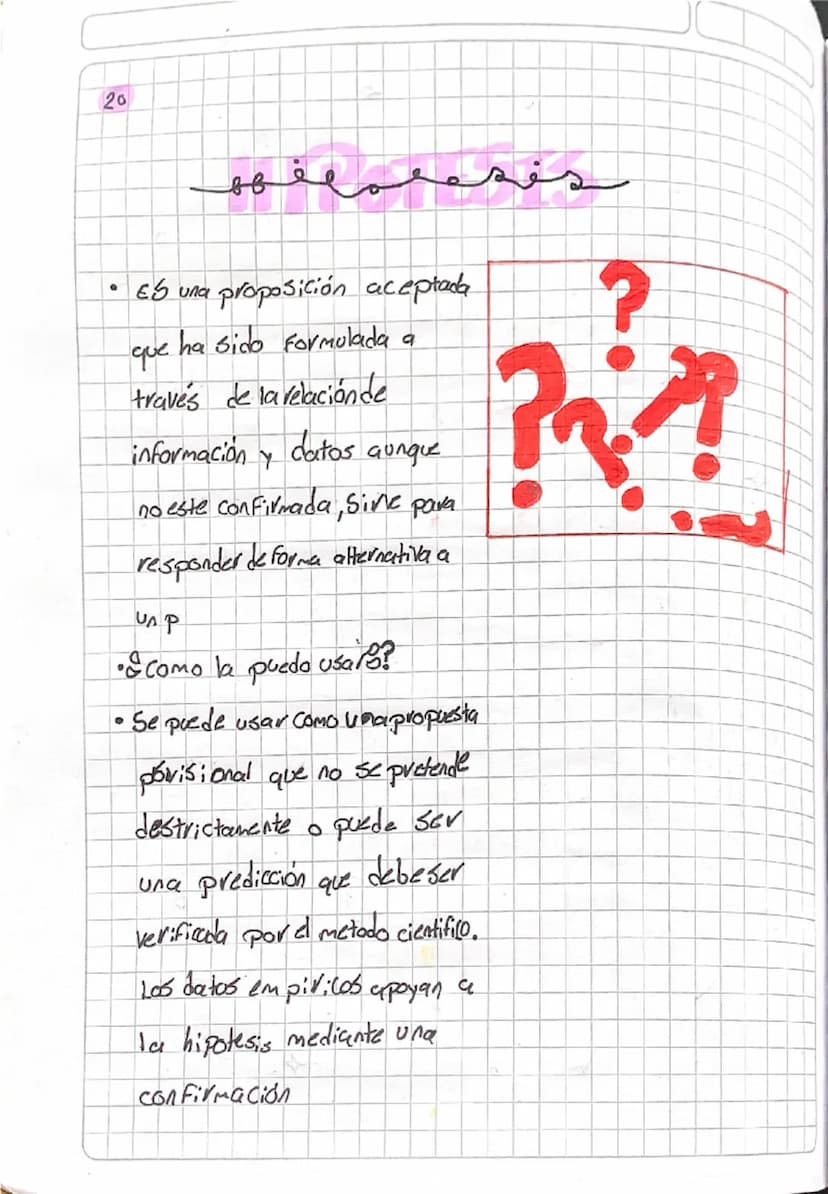 20
HIPOTESIS
• Es una proposición aceptada
que ha sido formulada a
través de la relación de
información y datos aunque
no este confirmada, sirve para
responder de forma alternativa a
un p
• ¿como la puedo usar?
• Se puede usar como una propuesta
provisional que no se pretende
destrictamente o puede ser
una predicción que debe ser
verificada por el metodo cientifico.
Los datos empiricos apoyan a
la hipotesis mediante una
confirmación